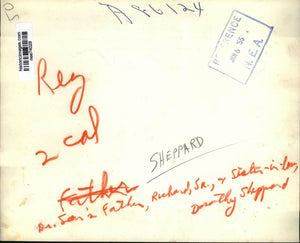 A 86124
REFERENCE
N.E.A.
Reg
2 cal
SHEPPARD
Father
Dr. Sam's Father, Richard, Sr., & Sister-in-law,
Dorothy Sheppard